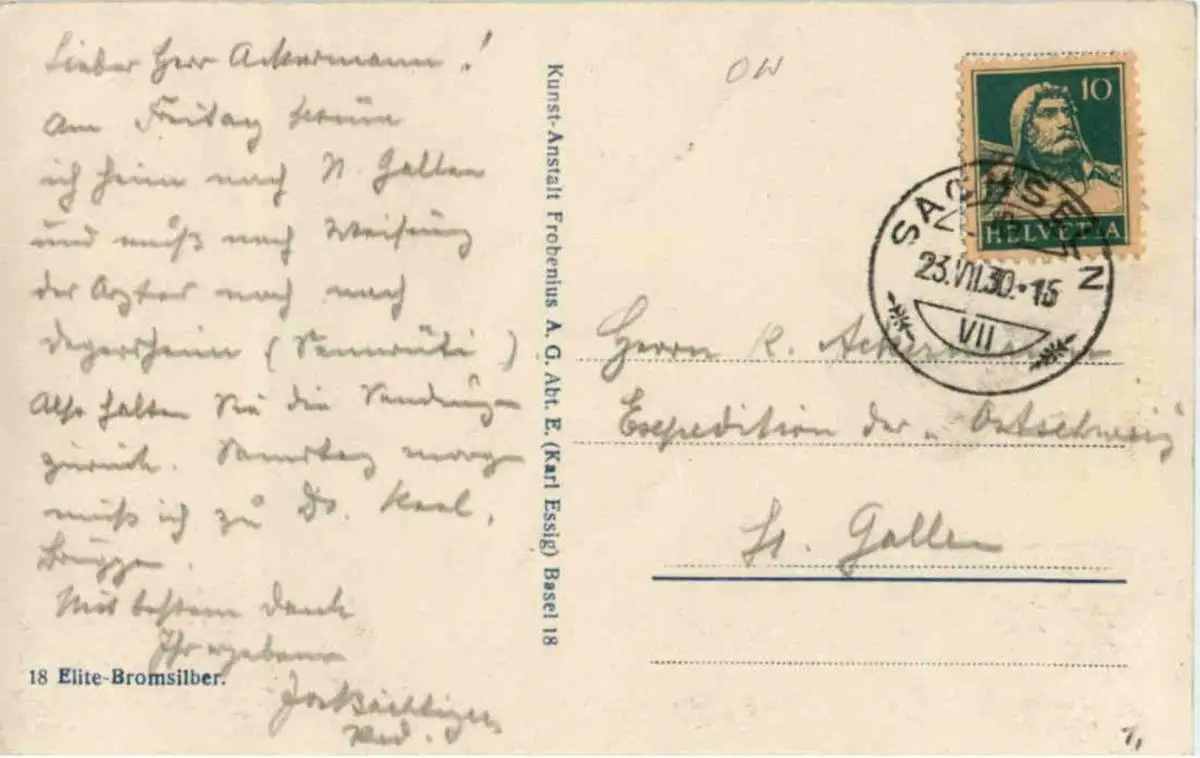 Lieber Herr Ackermann!
Am Freitag komme
ich heim nach St. Gallen
und muß nach Weisung
der Arztes noch nach
Degersheim (Sennrüti)
Also halten Sie die Sendungen
zurück. Samstag morgen
muß ich zu Dr. Keel,
Mit bestem Dank
Ihr ergebener
Jos Bächtiger
Red.
18 Elite-Bromsilber.
Kunst-Anstalt Frobenius A. G. Abt. E. (Karl Essig) Basel 18
OW
10
HELVETIA
SACHSELN
23.VII.30.-15
VII
Herrn R. Ackermann
Expedition der „Ostschweiz
St. Gallen